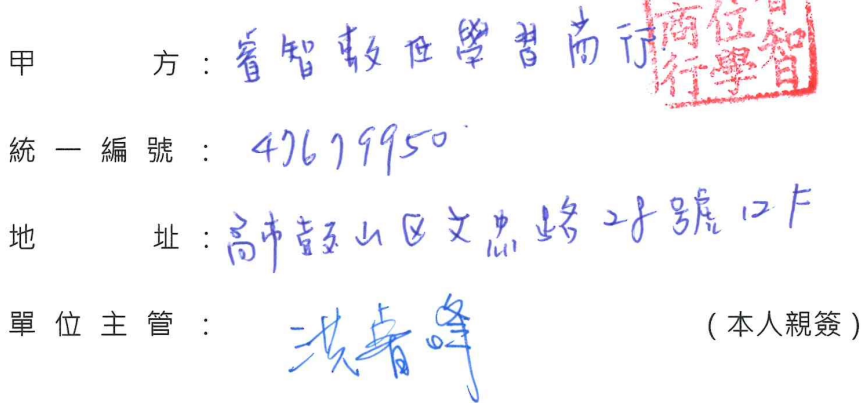 甲方：睿智數位學習商行
商位智
行學
統一編號：47679950
地址：高市鼓山区文忠路28號12F
單位主管：洪睿峰 (本人親簽)